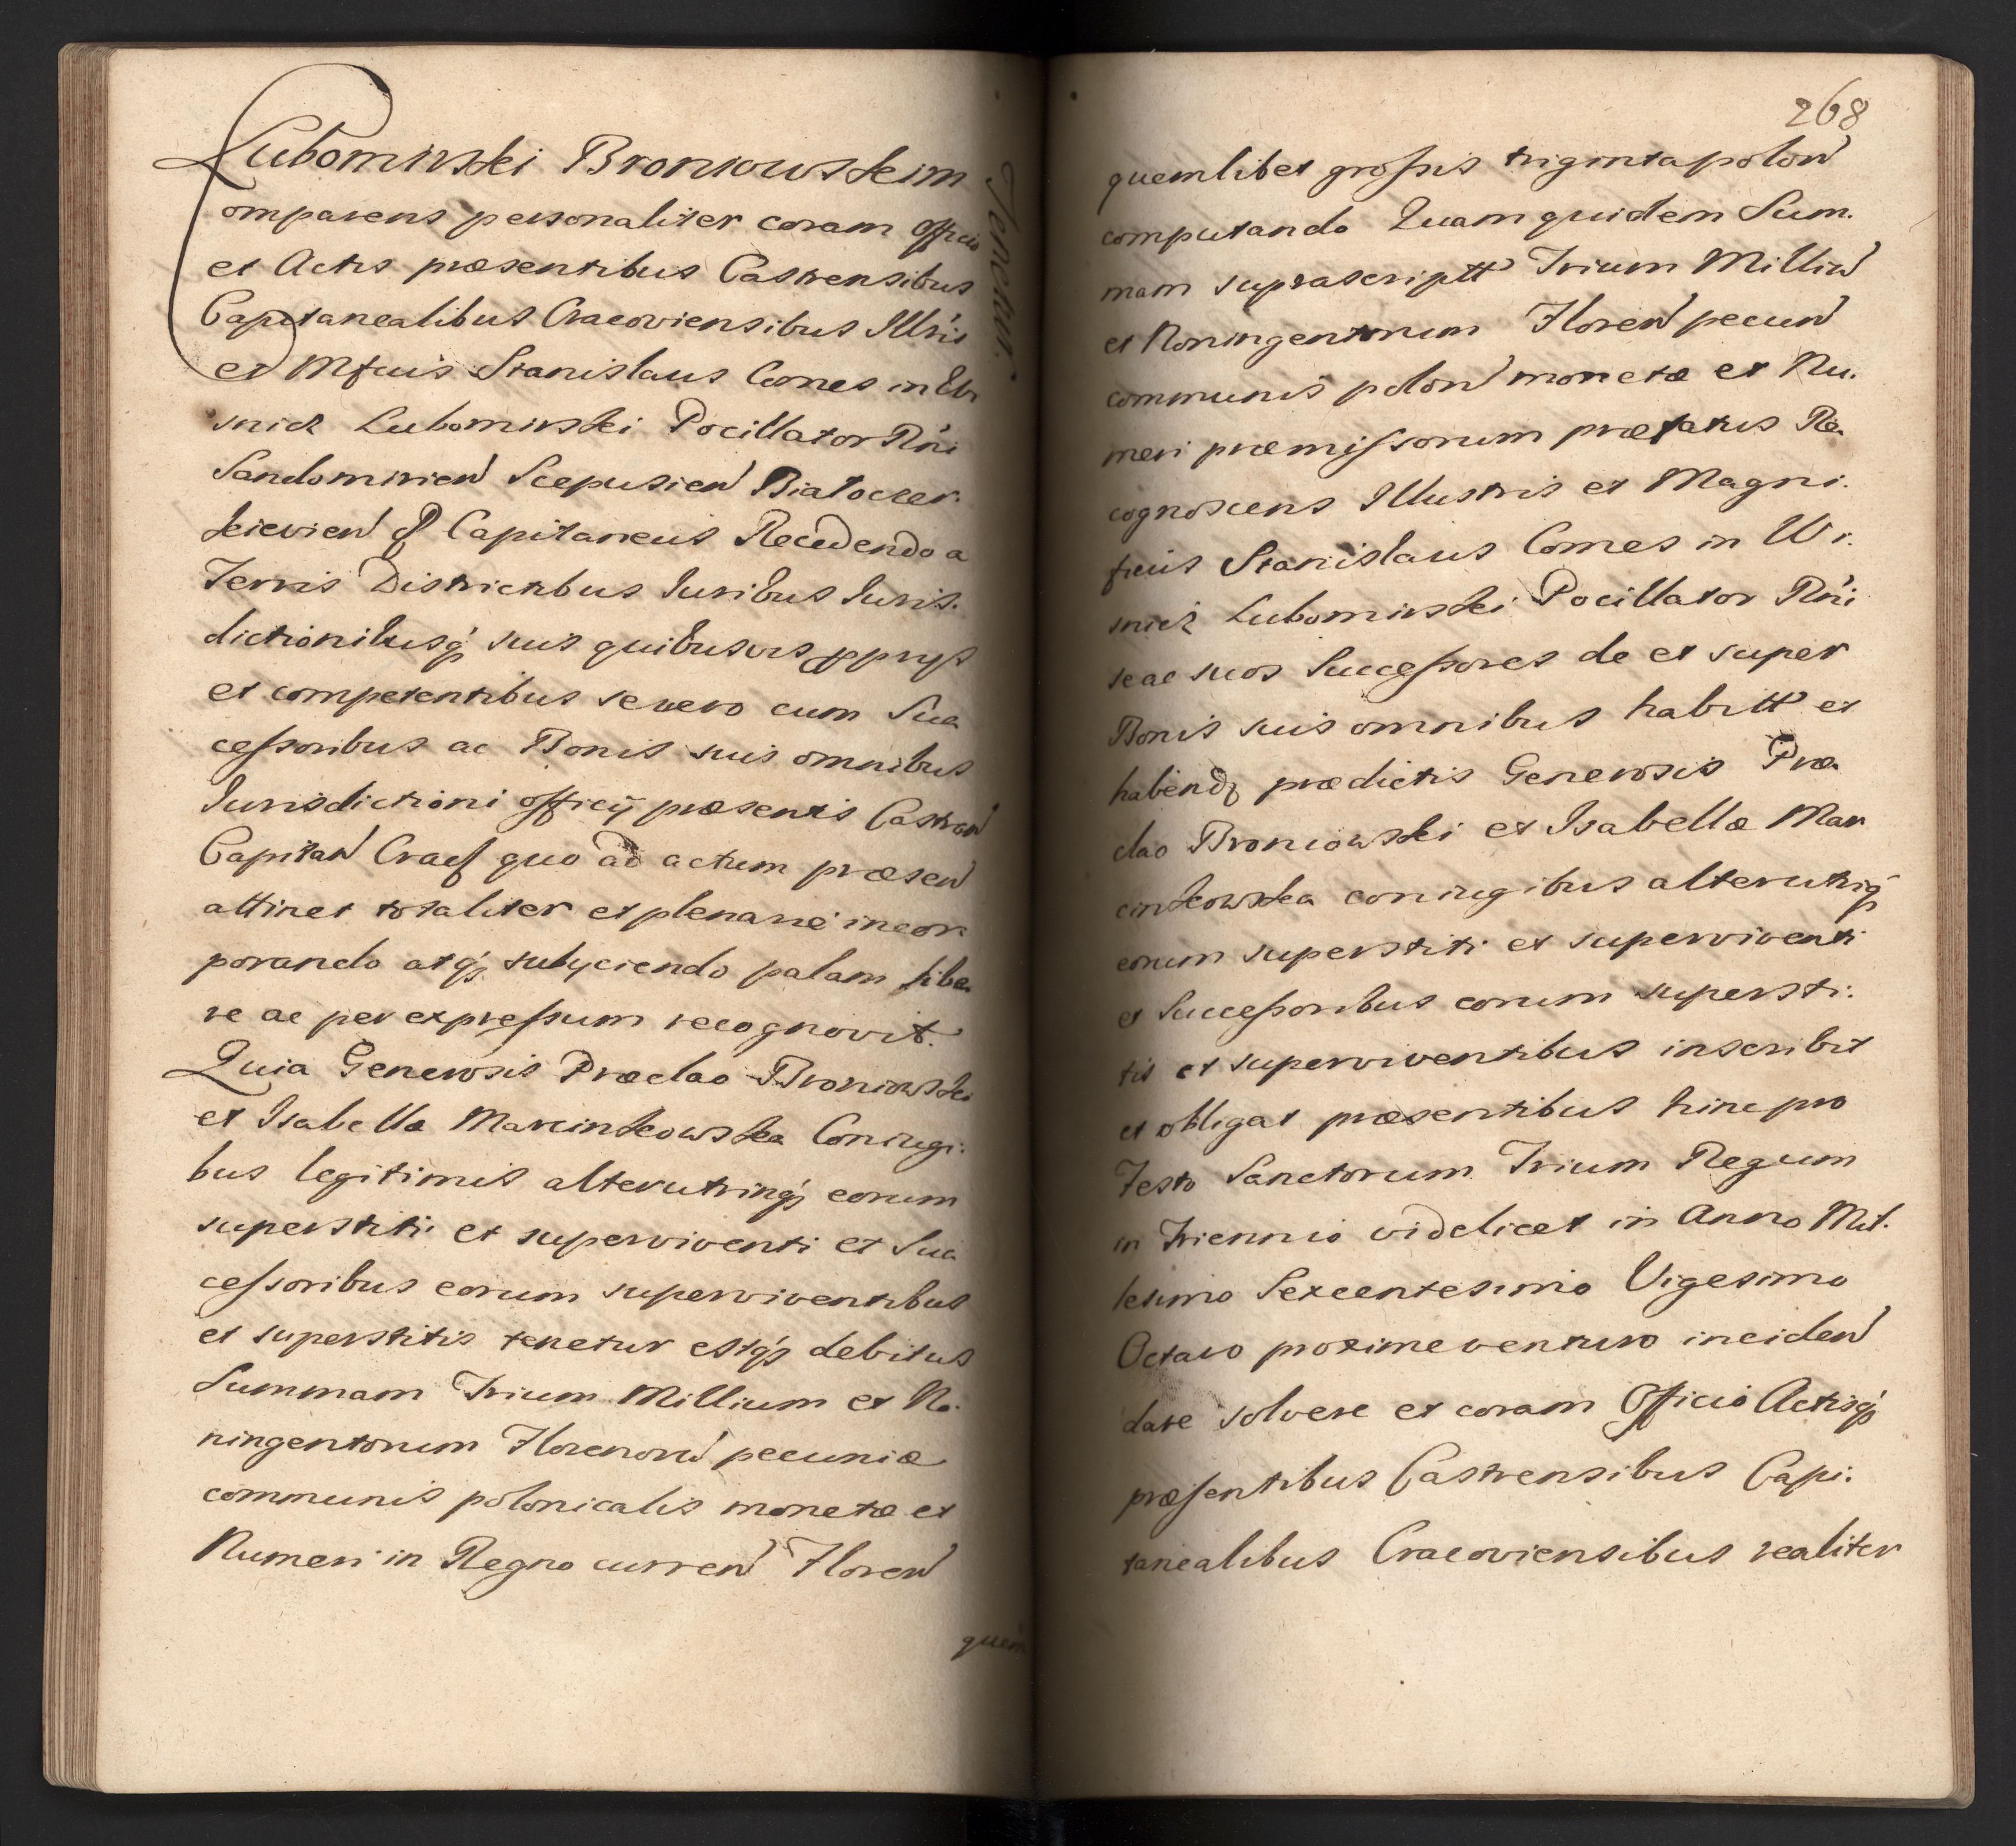 Lubomirski Broniowskim
Tenetur.
Comparens personaliter coram Officio
et Actis præsentibus Castrensibus
Capitanealibus Cracoviensibus Illris
et Mfcus Stanislaus Comes in
snicz Lubomirski Pocillator Rni
Sandomirien Scepusien Białocer
kievien Capitaneus Recedendo a
Terris Districtibus Iuribus Iuris.
dictionibusq suis quibusvis pprijs
et competentibus se vero cum Suc
cessoribus ac Bonis suis omnibus
Iurisdictioni officij præsentis Castren
Capitan Crac quo ad actum præsen
attinet totaliter et plenarie incor
porando atq subijciendo palam libe
re ac per expressum recognovit.
Quia Generosis Præclao Broniowski
et Isabella Marcinkowska Coniugi:
bus legitimis alterutrinq eorum
superstiti et superviventi et Suc
cessoribus eorum superviventibus
et superstitis tenetur estq debitus
Summam Trium Millium et No.
ningentorum Florenoru pecuniæ
communis polonicalis monetæ et
Numeri in Regno curren Floren
quem
268
quemlibet grossis triginta polon
computando Quam quidem Sum.
mam suprascriptt Trium Milliu
et Noningentorum Floren pecun
communis polon monetæ et Nu.
meri præmissorum præfatus Re
cognoscens Illustris et Magni.
ficus Stanislaus Comes in Wi.
snicz Lubomirski Pocillator Rni
se ac suos Successores de et super
Bonis suis omnibus habitt et
habend prædictis Generosis Præ
clao Broniowski et Isabellæ Mar
cinkowska coniugibus alterutriq
eorum superstiti et superviventi
et Successoribus eorum supersti:
tis et superviventibus inscribit
et obligat præsentibus hinc pro
Festo Sanctorum Trium Regum
in Triennio videlicet in Anno Mil.
lesimo Sexcentesimo Vigesimo
Octavo proxime venturo inciden
dare solvere et coram Officio Actisq
præsentibus Castrensibus Capi.
tanealibus Cracoviensibus realiter